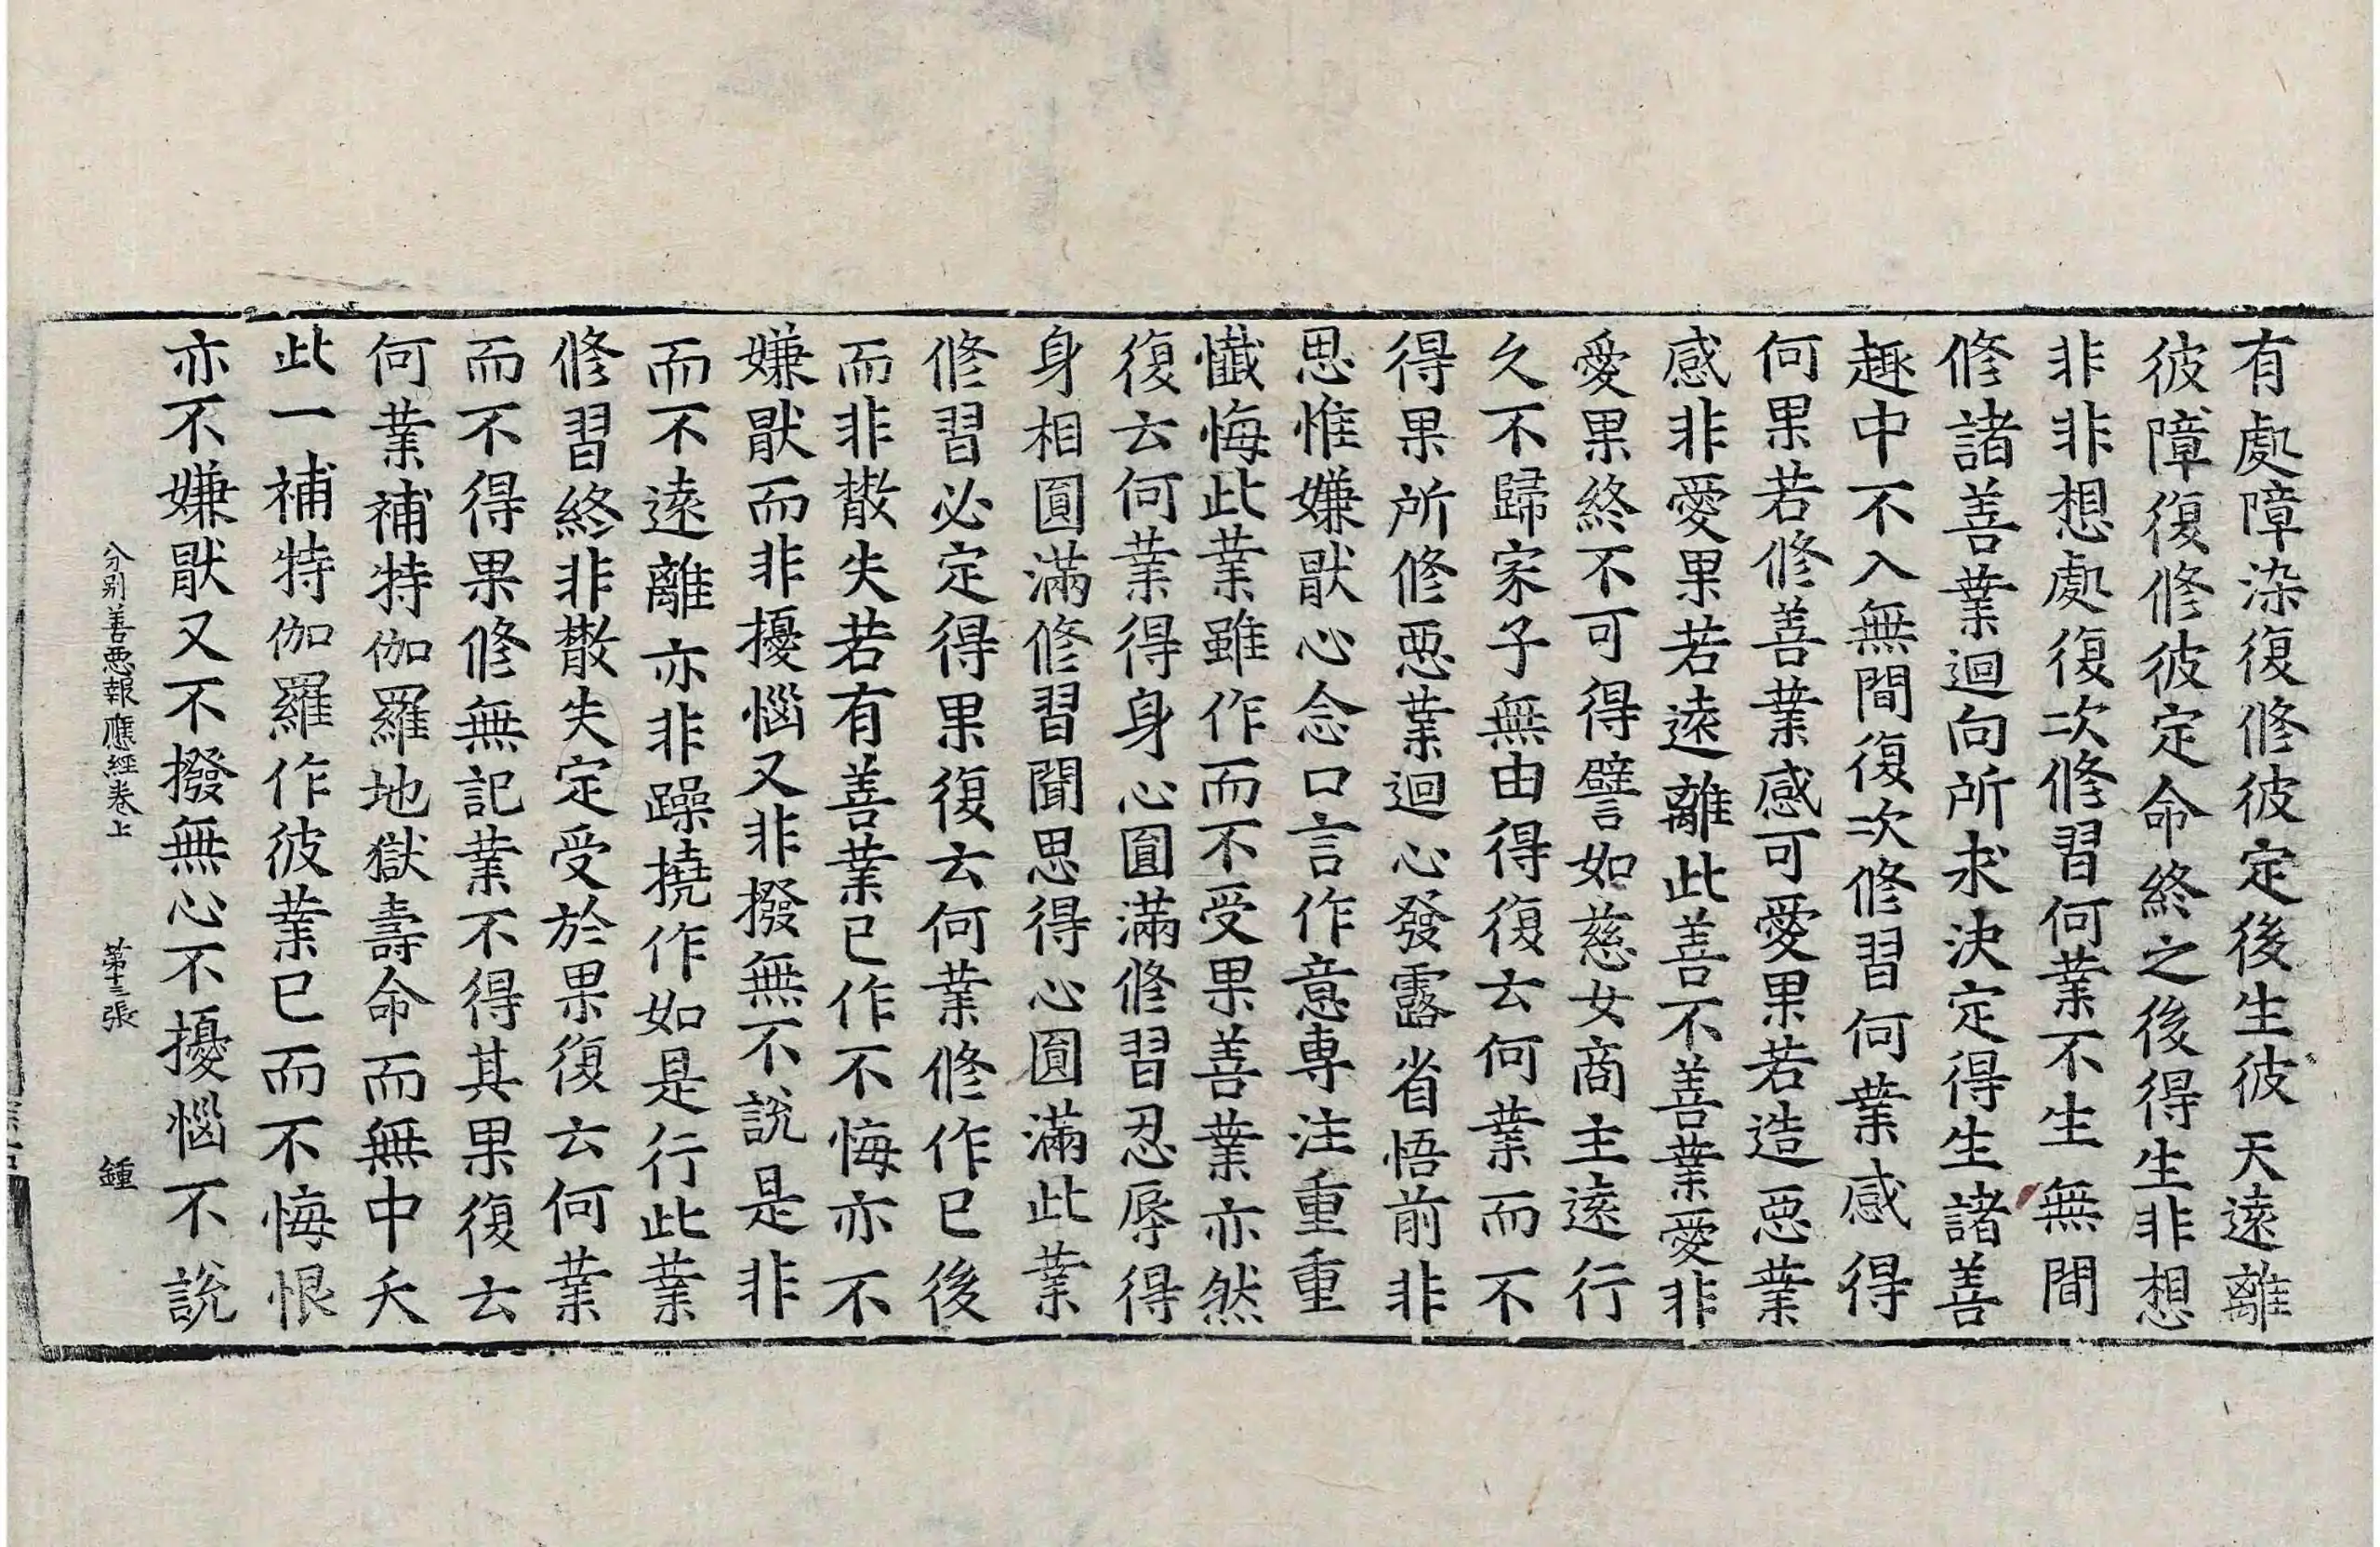 有處障染復修彼定後生彼天遠離
彼障復修彼定命終之後得生非想
非非想處復次修習何業不生無間
修諸善業迴向所求決定得生諸善
趣中不入無間復次修習何業感得
何果若修善業感可愛果若造惡業
感非愛果若遠離此善不善業愛非
愛果終不可得譬如慈女商主遠行
久不歸家子無由得復云何業而不
得果所修惡業迴心發露省悟前非
思惟嫌猒心念口言作意專注重重
懺悔此業雖作而不受果善業亦然
復云何業得身心圓滿修習忍辱得
身相圓滿修習聞思得心圓滿此業
修習必定得果復云何業修作已後
而非散失若有善業已作不悔亦不
嫌猒而非擾惱又非撥無不說是非
而不遠離亦非躁撓作如是行此業
修習終非散失定受於果復云何業
而不得果修無記業不得其果復云
何業補特伽羅地獄壽命而無中夭
此一補特伽羅作彼業已而不悔恨
亦不嫌猒又不撥無心不擾惱不說
分別善惡報應經卷上 第十三張 鍾